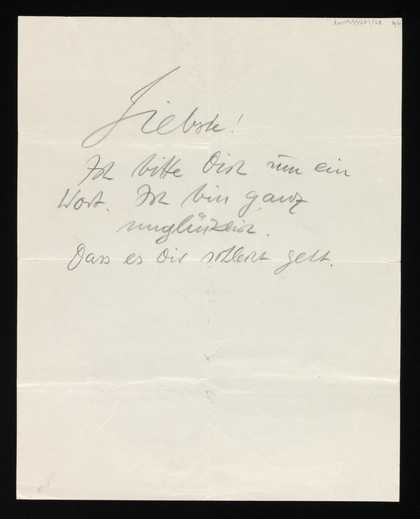 Liebste!
Ich bitte Dich um ein
Wort. Ich bin ganz
unglücklich.
Dass es Dir schlecht geht.